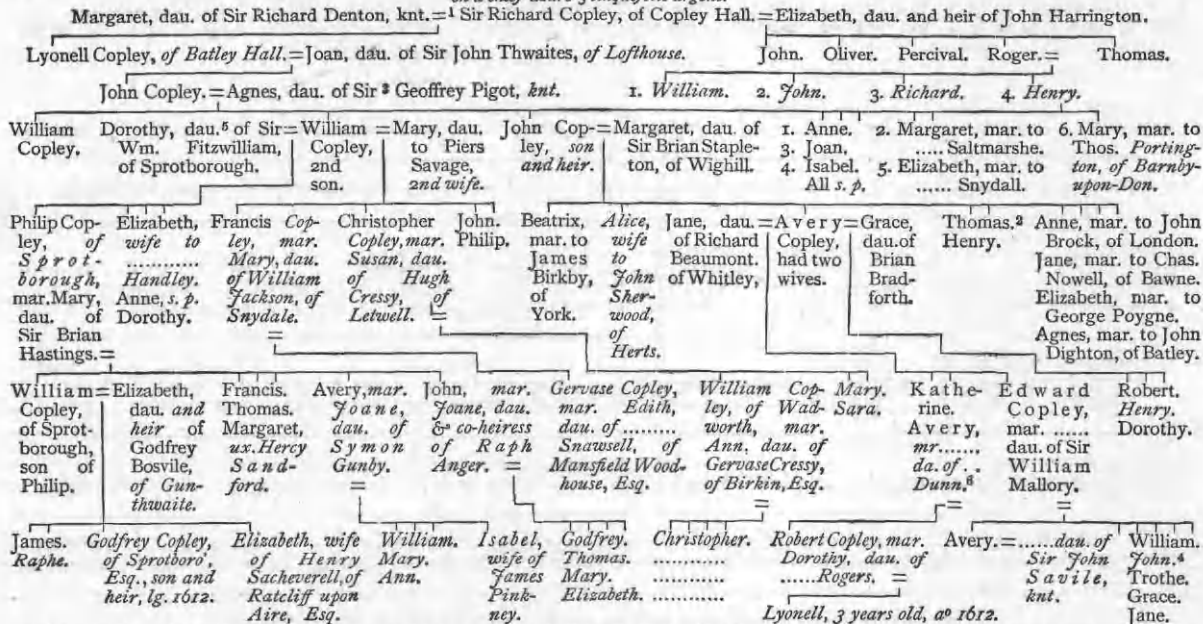 Margaret, dau. of Sir Richard Denton, knt.=¹ Sir Richard Copley, of Copley Hall.=Elizabeth, dau. and heir of John Harrington.
Lyonell Copley, of Batley Hall.=Joan, dau. of Sir John Thwaites, of Lofthouse.
John. Oliver. Percival. Roger.= Thomas.
John Copley.=Agnes, dau. of Sir ³ Geoffrey Pigot, knt.
1. William. 2. John. 3. Richard. 4. Henry.
William
Copley.
Dorothy, dau.⁵ of Sir=
Wm. Fitzwilliam,
of Sprotborough.
William
Copley,
2nd
son.
=Mary, dau.
to Piers
Savage,
2nd wife.
John Cop-
ley, son
and heir.
=Margaret, dau. of
Sir Brian Staple-
ton, of Wighill.
1. Anne. 2. Margaret, mar. to
3. Joan, ..... Saltmarshe.
4. Isabel. 5. Elizabeth, mar. to
All s. p. ...... Snydall.
6. Mary, mar. to
Thos. Porting-
ton, of Barnby-
upon-Don.
Philip Cop-
ley, of
Sprot-
borough,
mar. Mary,
dau. of
Sir Brian
Hastings.=
Elizabeth,
wife to
............
Handley.
Anne, s. p.
Dorothy.
Francis Cop-
ley, mar.
Mary, dau.
of William
Jackson, of
Snydale.
=
Christopher
Copley, mar.
Susan, dau.
of Hugh
Cressy, of
Letwell. =
John.
Philip.
Beatrix,
mar. to
James
Birkby,
of
York.
Alice,
wife
to
John
Sher-
wood,
of
Herts.
Jane, dau.
of Richard
Beaumont.
of Whitley,
=Avery=
Copley,
had two
wives.
Grace,
dau. of
Brian
Brad-
forth.
Thomas.²
Henry.
Anne, mar. to John
Brock, of London.
Jane, mar. to Chas.
Nowell, of Bawne.
Elizabeth, mar. to
George Poygne.
Agnes, mar. to John
Dighton, of Batley.
William=
Copley,
of Sprot-
borough,
son of
Philip.
Elizabeth,
dau. and
heir of
Godfrey
Bosvile,
of Gun-
thwaite.
Francis.
Thomas.
Margaret,
ux. Hercy
Sand-
ford.
Avery, mar.
Joane,
dau. of
Symon
Gunby.
=
John, mar.
Joane, dau.
& co-heiress
of Raph
Anger. =
Gervase Copley,
mar. Edith,
dau. of .........
Snawsell, of
Mansfield Wood-
house, Esq.
William Cop-
ley, of Wad-
worth, mar.
Ann, dau. of
Gervase Cressy,
of Birkin, Esq.
=
Mary.
Sara.
Kathe-
rine.
Avery,
mr.......,
da. of . .
Dunn.⁶
=
Edward
Copley,
mar. ......
dau. of Sir
William
Mallory.
=
Robert.
Henry.
Dorothy.
James.
Raphe.
Godfrey Copley,
of Sprotboro',
Esq., son and
heir, lg. 1612.
Elizabeth, wife
of Henry
Sacheverell, of
Ratcliff upon
Aire, Esq.
William.
Mary.
Ann.
Isabel,
wife of
James
Pink-
ney.
Godfrey.
Thomas.
Mary.
Elizabeth.
Christopher.
............
............
............
Robert Copley, mar.
Dorothy, dau. of
......Rogers. =
Lyonell, 3 years old, aº 1612.
Avery.=......dau. of
Sir John
Savile,
knt.
William.
John.⁴
Trothe.
Grace.
Jane.